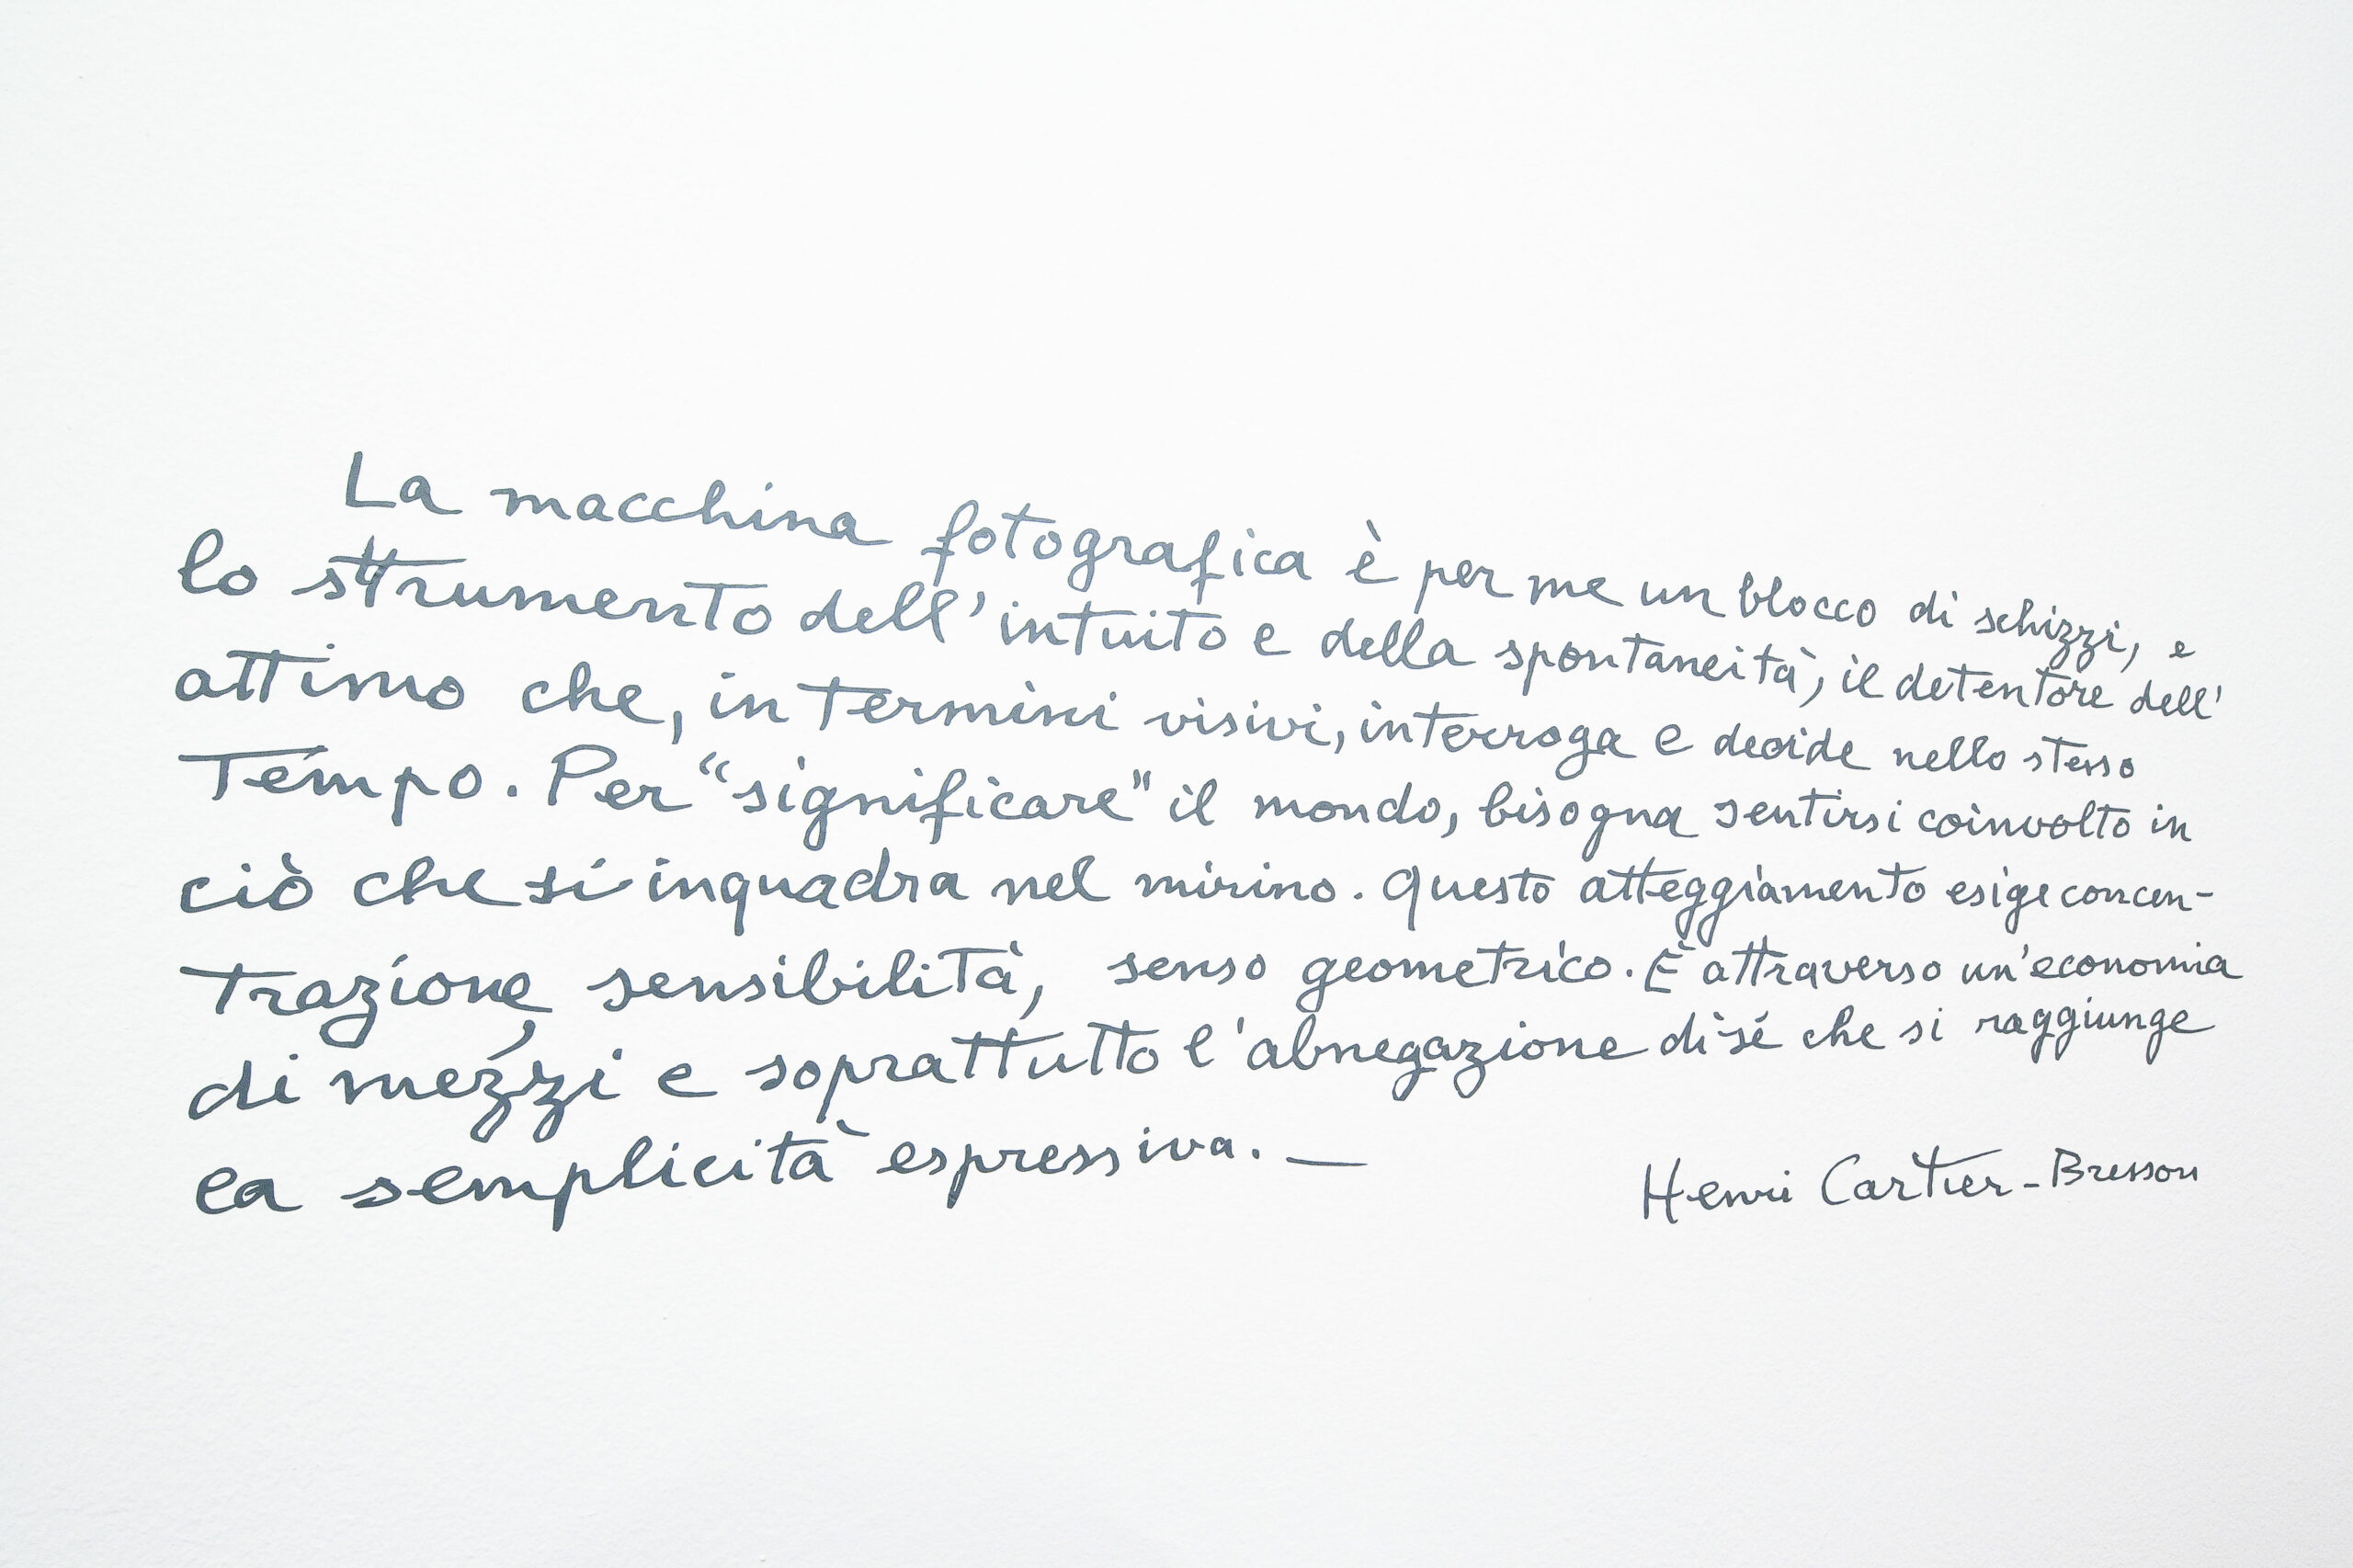 La macchina fotografica è per me un blocco di schizzi, e
lo strumento dell'intuito e della spontaneità, il detentore dell'
attimo che, in termini visivi, interroga e decide nello stesso
Tempo. Per “significare” il mondo, bisogna sentirsi coinvolto in
ciò che si inquadra nel mirino. Questo atteggiamento esige concen-
trazione, sensibilità, senso geometrico. È attraverso un'economia
di mezzi e soprattutto l'abnegazione di sé che si raggiunge
la semplicità espressiva. —
Henri Cartier-Bresson